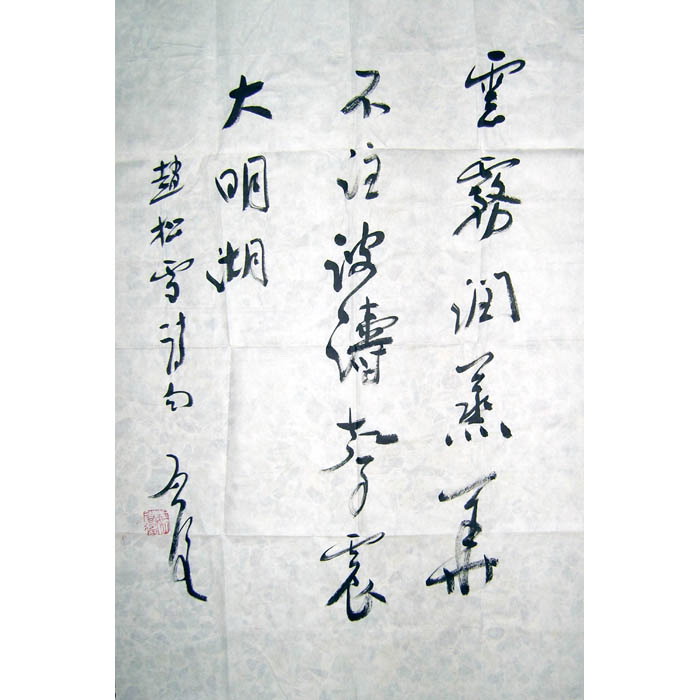 雲霧潤蒸華
不注波濤聲震
大明湖
趙松雪詩句